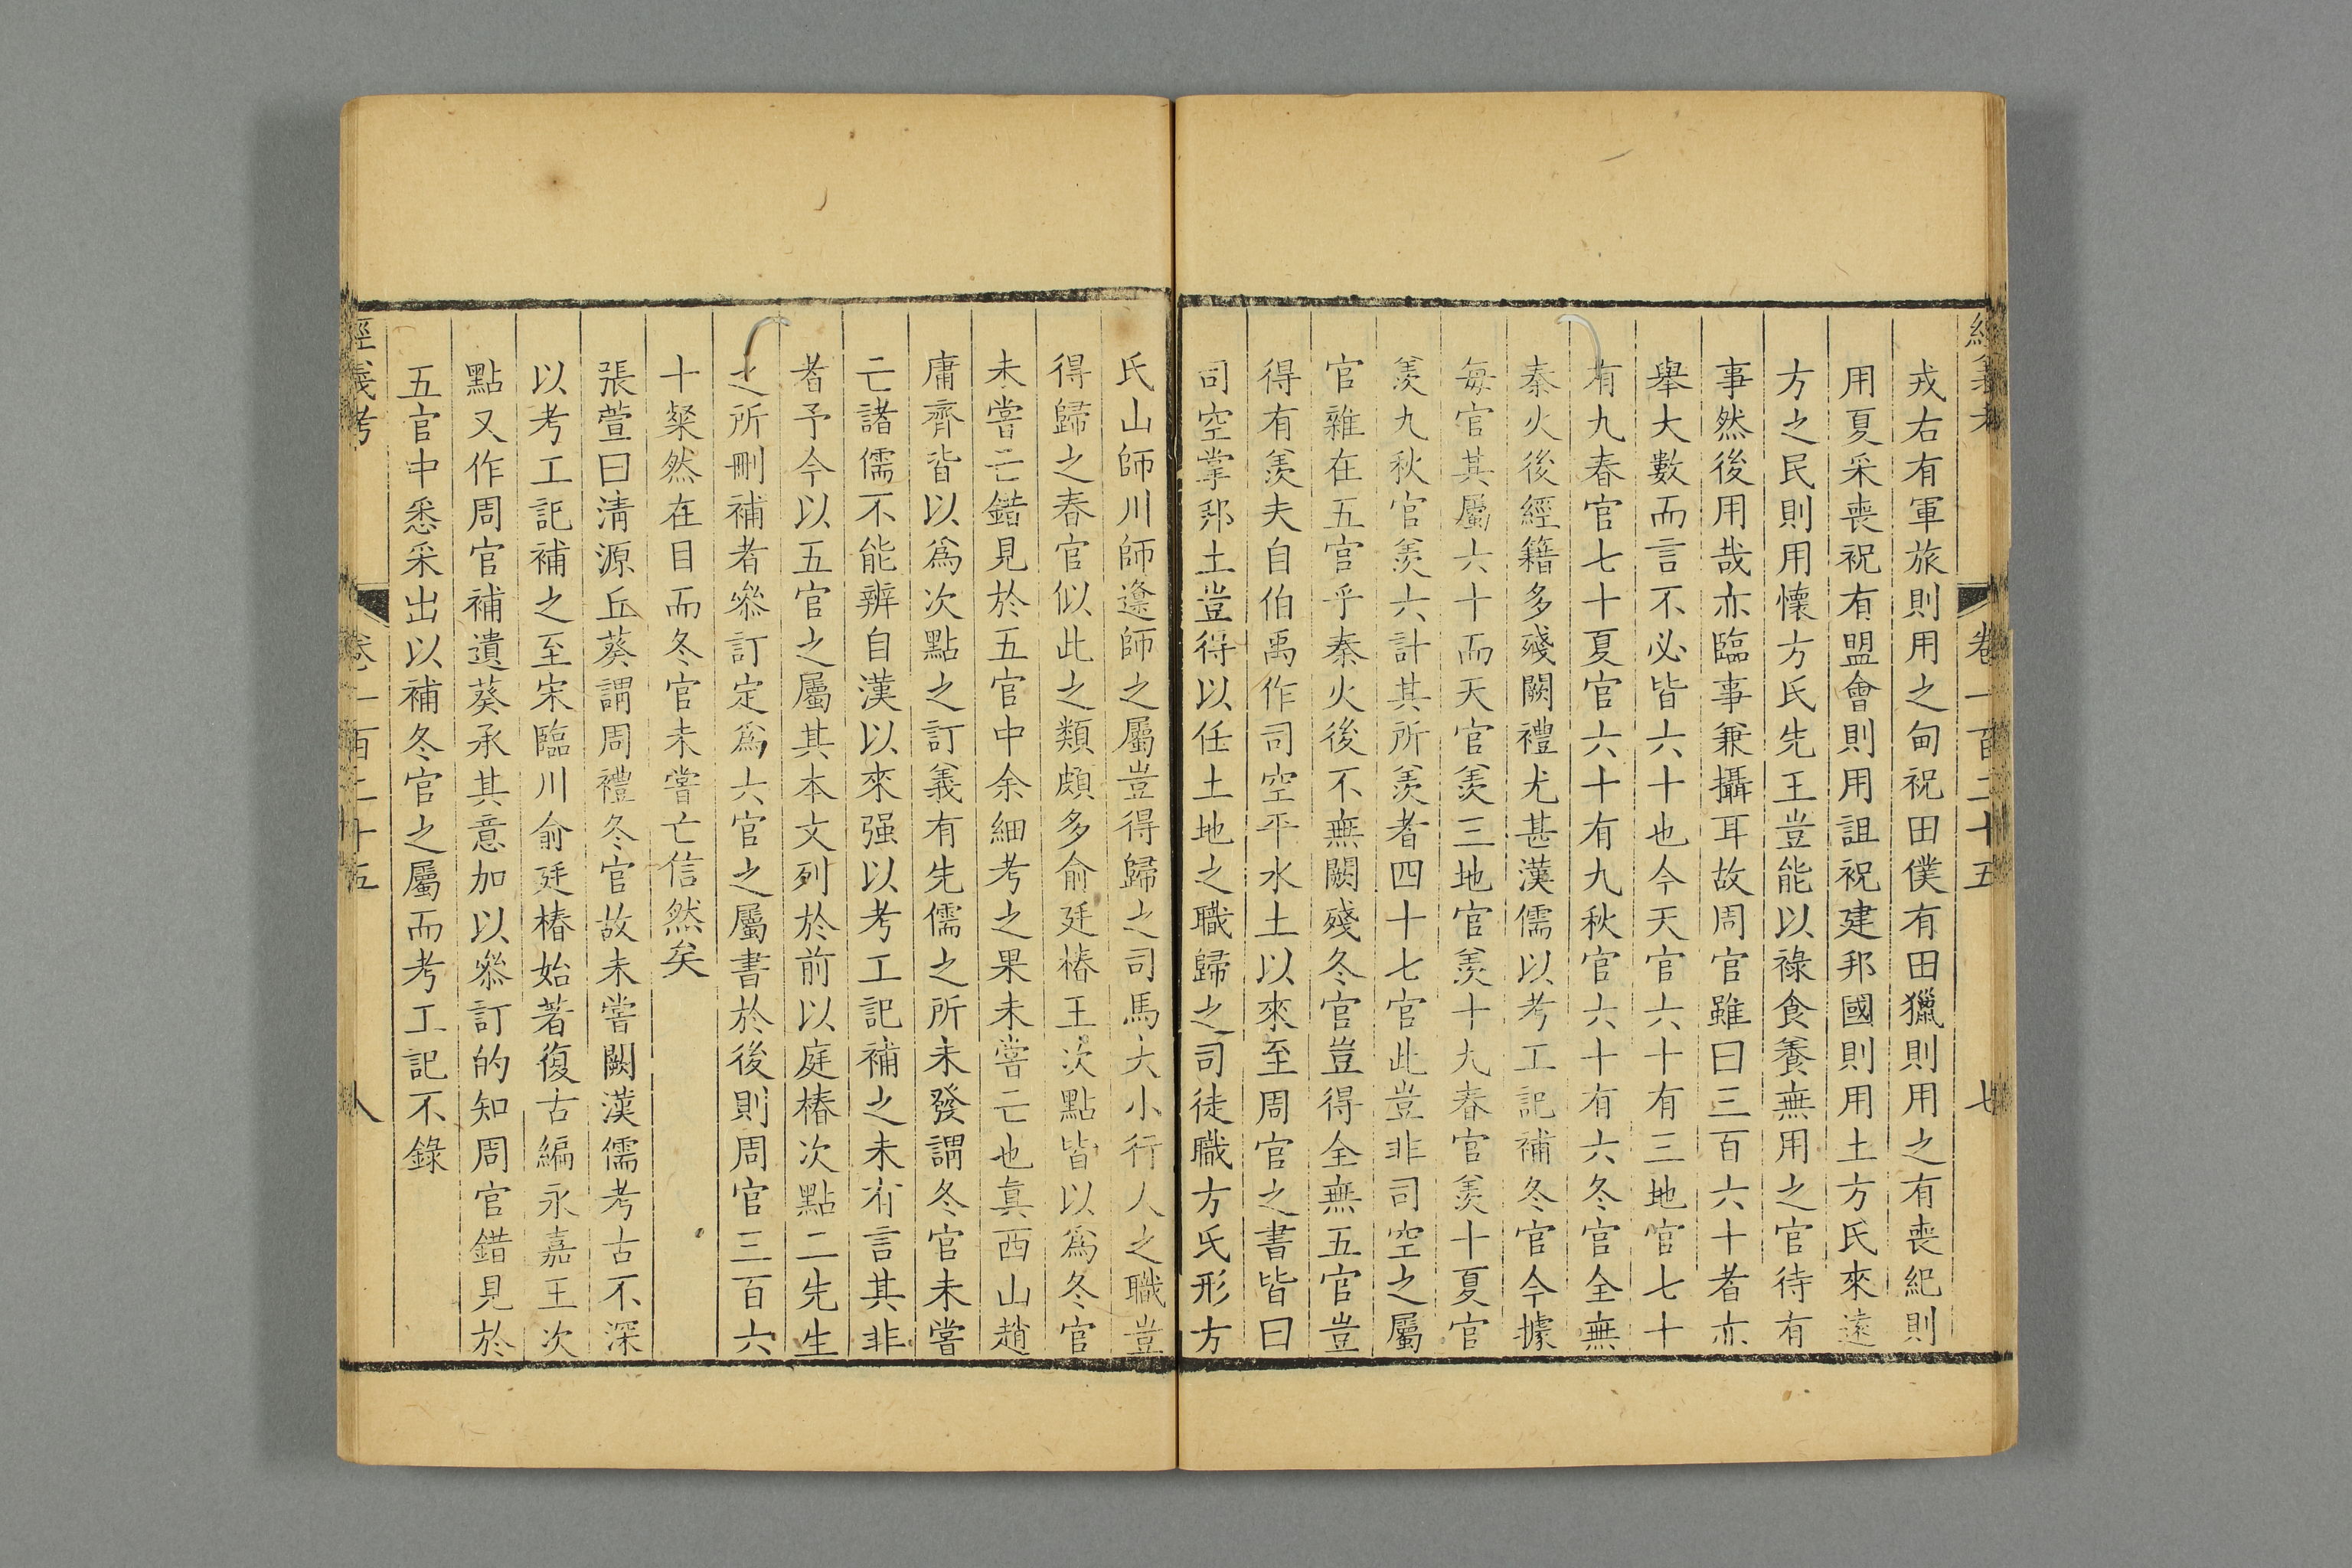 經義考
卷一百二十五
七
戎右有軍旅則用之甸祝田僕有田獵則用之有喪紀則
用夏采喪祝有盟會則用詛祝建邦國則用土方氏來遠
方之民則用懷方氏先王豈能以祿食養無用之官待有
事然後用哉亦臨事兼攝耳故周官雖曰三百六十者亦
舉大數而言不必皆六十也今天官六十有三地官七十
有九春官七十夏官六十有九秋官六十有六冬官全無
秦火後經籍多殘闕禮尤甚漢儒以考工記補冬官今據
每官其屬六十而天官羨三地官羨十九春官羨十夏官
羨九秋官羨六計其所羨者四十七官此豈非司空之屬
官雜在五官乎秦火後不無闕殘冬官豈得全無五官豈
得有羨夫自伯禹作司空平水土以來至周官之書皆曰
司空掌邦土豈得以任土地之職歸之司徒職方氏形方
氏山師川師邍師之屬豈得歸之司馬大小行人之職豈
得歸之春官似此之類頗多俞廷椿王次點皆以為冬官
未嘗亡錯見於五官中余細考之果未嘗亡也真西山趙
庸齊皆以為次點之訂義有先儒之所未發謂冬官未嘗
亡諸儒不能辨自漢以來强以考工記補之未有言其非
者予今以五官之屬其本文列於前以庭椿次點二先生
之所刪補者叅訂定爲六官之屬書於後則周官三百六
十粲然在目而冬官未嘗亡信然矣
張萱曰清源丘葵謂周禮冬官故未嘗闕漢儒考古不深
以考工記補之至宋臨川俞廷椿始著復古編永嘉王次
點又作周官補遺葵承其意加以叅訂的知周官錯見於
五官中悉采出以補冬官之屬而考工記不錄
經義考
卷一百二十五
八